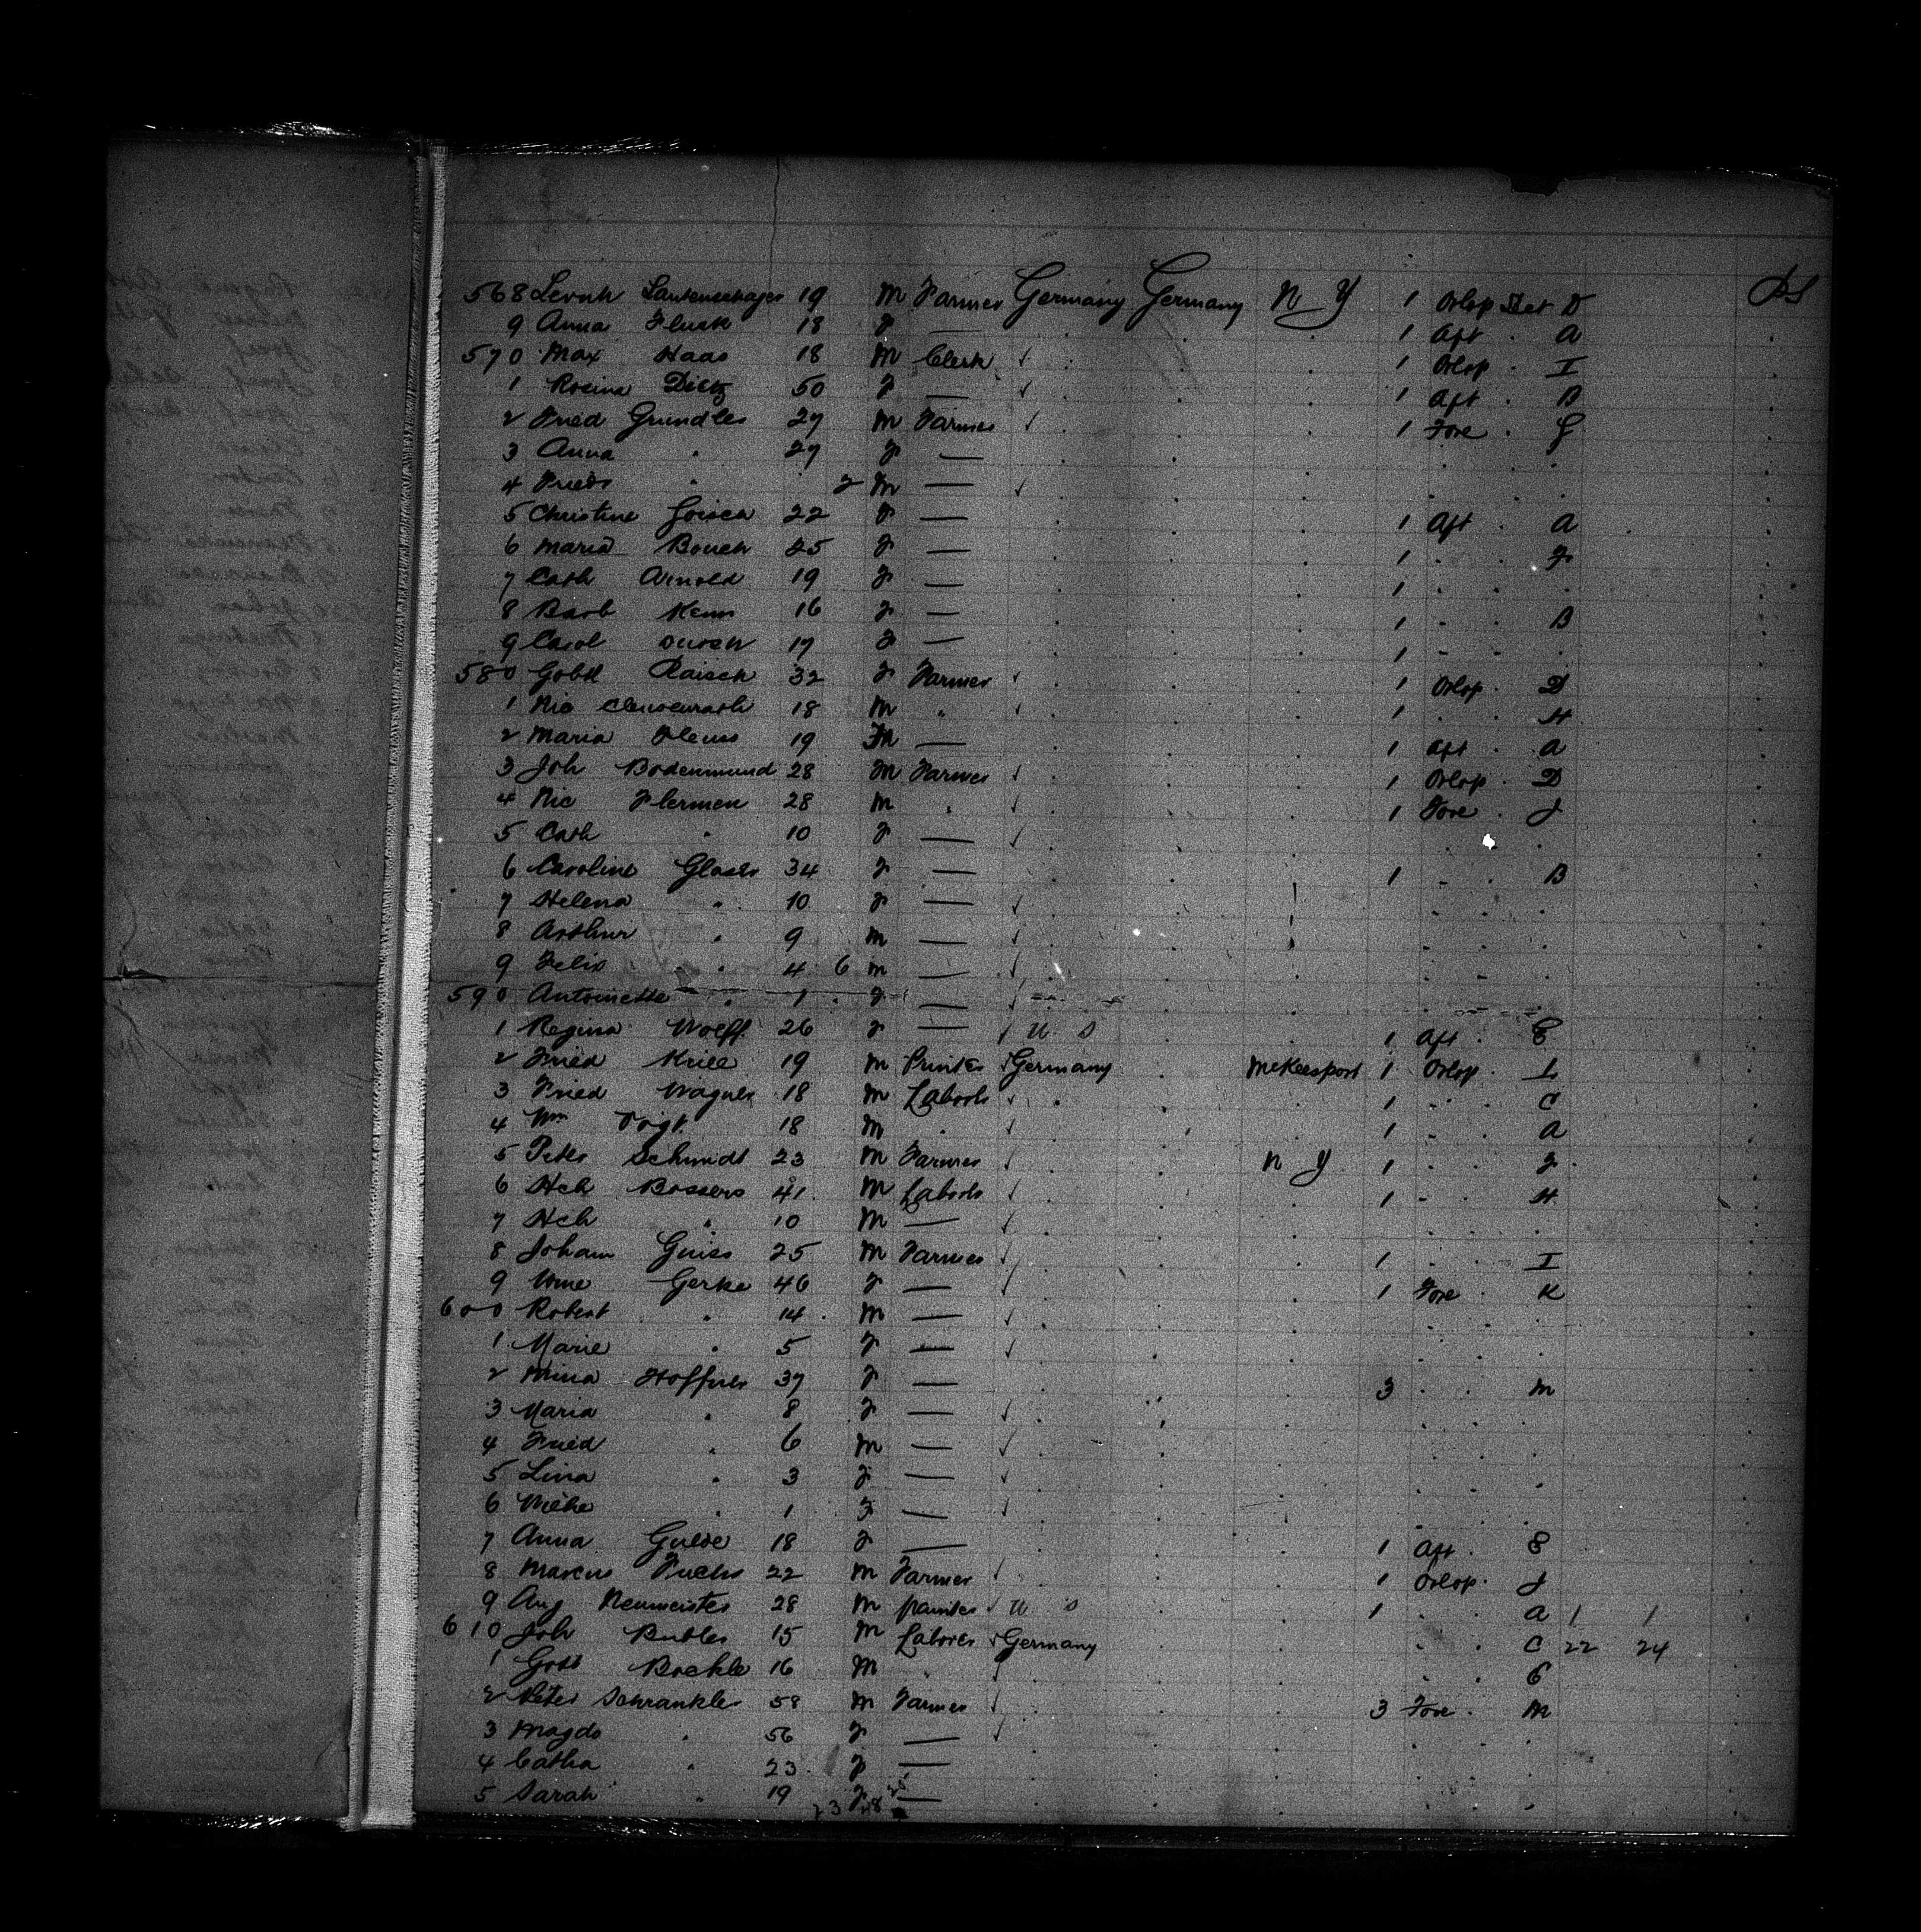 568 Levnh Lautenschager 19 M Farmer Germany Germany N Y 1 Orlop Dec D
9 Anna Fluck 18 F — 1 Aft . A
570 Max Haas 18 M Clerk ✓ . 1 Orlop . I
1 Rosina Dietz 50 F — ✓ 1 Aft . B
2 Fried Grindler 27 M Farmer ✓ 1 Fore . G
3 Anna " 27 F —
4 Friedr " 2 M — ✓
5 Christine 22 F — 1 Aft . A
6 Maria Bouch 25 F — 1 . . F
7 Cath Arnold 19 F — 1 . . .
8 Barb Kenn 16 F — 1 . . B
9 Carol 17 F — 1 . . .
580 Gobtl Raisch 32 F Farmer ✓ 1 Orlop . D
1 Nic Clausenrath 18 M " ✓ 1 . . H
2 Maria 19 FM — 1 Aft . A
3 Joh Bodenmund 28 M Farmer ✓ 1 Orlop . D
4 Nic Flermen 28 M " ✓ 1 Fore . J
5 Cath " 10 F — ✓
6 Caroline Glaser 34 F — 1 . . B
7 Helena " 10 F — ✓
8 Arthur " 9 M — ✓
9 Felix " 4 6 M — ✓
590 Antoinette " 1 . F — ✓
1 Regina Wolff 26 F — ✓ U S 1 Aft . E
2 Fried Krill 19 M Printer ✓ Germany . McKeesport 1 Orlop . L
3 Fried Wagner 18 M Labor ✓ . 1 . . C
4 Wm Voigt 18 M " ✓ 1 . . A
5 Peter Schmidt 23 M Farmer ✓ N Y 1 . . F
6 Hch Bossers 41 M Labor ✓ 1 . . H
7 Hch " 10 M — ✓
8 Joham Guiss 25 M Farmer ✓ 1 . . I
9 Wme Gerke 46 F — ✓ 1 Fore . K
600 Robert " 14 . M — ✓
1 Marie " 5 F — ✓
2 Mina Hoffner 37 F — 3 . . M
3 Maria " 8 F — ✓
4 Fried " 6 M — ✓
5 Lina " 3 F — ✓
6 " 1 F — ✓
7 Anna Gulde 18 F — 1 Aft . E
8 Marcus Fuchs 22 M Farmer ✓ 1 Orlop . J
9 Aug Neumeister 28 M painter ✓ U S 1 . . A 1 1
610 Joh Butler 15 M Laborer ✓ Germany . . C 22 24
1 Gott Bockle 16 M " ✓ . . G
2 Peter Schrankler 58 M Farmer ✓ 3 Fore . M
3 Magda " 56 F — ✓
4 Catha " 23 F —
5 Sarah " 19 F —